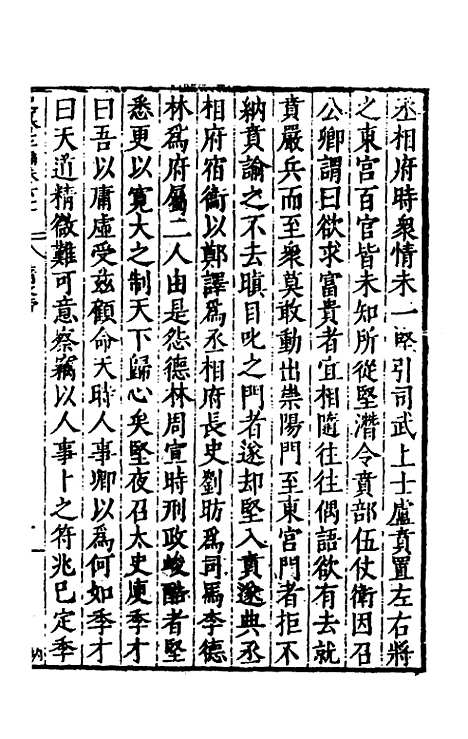 丞相府時衆情未一堅引司武上士盧賁置左右將
之東宮百官皆未知所從堅潛令賁部伍仗衛因召
公卿謂曰欲求富貴者宜相隨往往偶語欲有去就
賁嚴兵而至衆莫敢動出崇陽門至東宮門者拒不
納賁諭之不去瞋目叱之門者遂却堅入賁遂典丞
相府宿衞以鄭譯爲丞相府長史劉昉爲司馬李德
林爲府屬二人由是怨德林周宣時刑政峻酷者堅
悉更以寛大之制天下歸心矣堅夜召太史庾季才
曰吾以庸虛受兹顧命天時人事卿以爲何如季才
曰天道精微難可意察竊以人事卜之符兆已定季